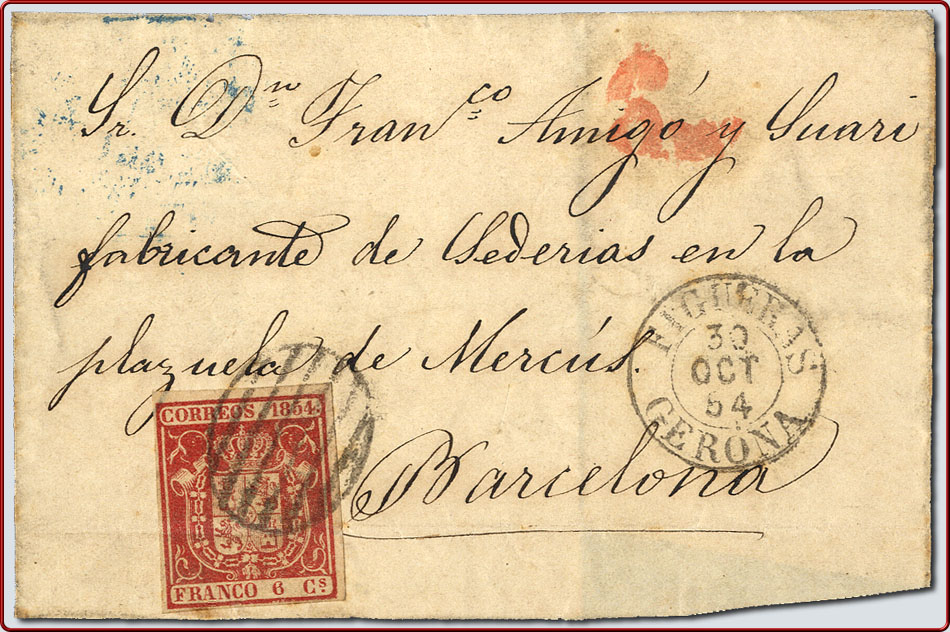 Sr. Dn Franco Amigó y Suari
fabricante de Sederias en la
plazuela de Mercús.
Barcelona
FIGUERAS
30
OCT
54
GERONA
CORREOS 1854.
FRANCO 6 Cs